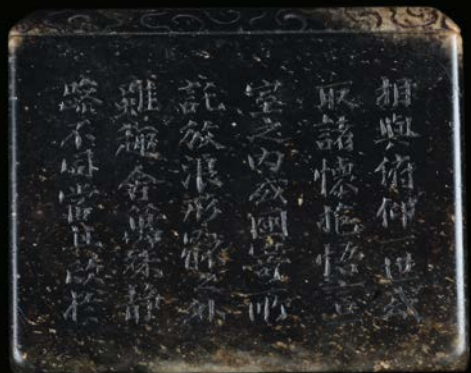 相與俯仰一世或
取諸懷抱悟言一
室之内或因寄所
託放浪形骸之外
雖趣舍萬殊静
躁不同當其欣於